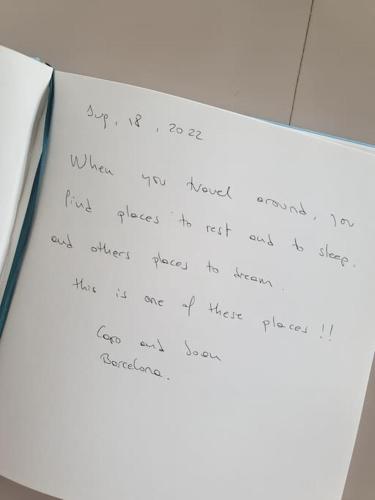 Sup, 18, 2022
When you travel around, you
find places to rest and to sleep.
and others places to dream.
this is one of these places!!
Caro and Joan
Barcelona.